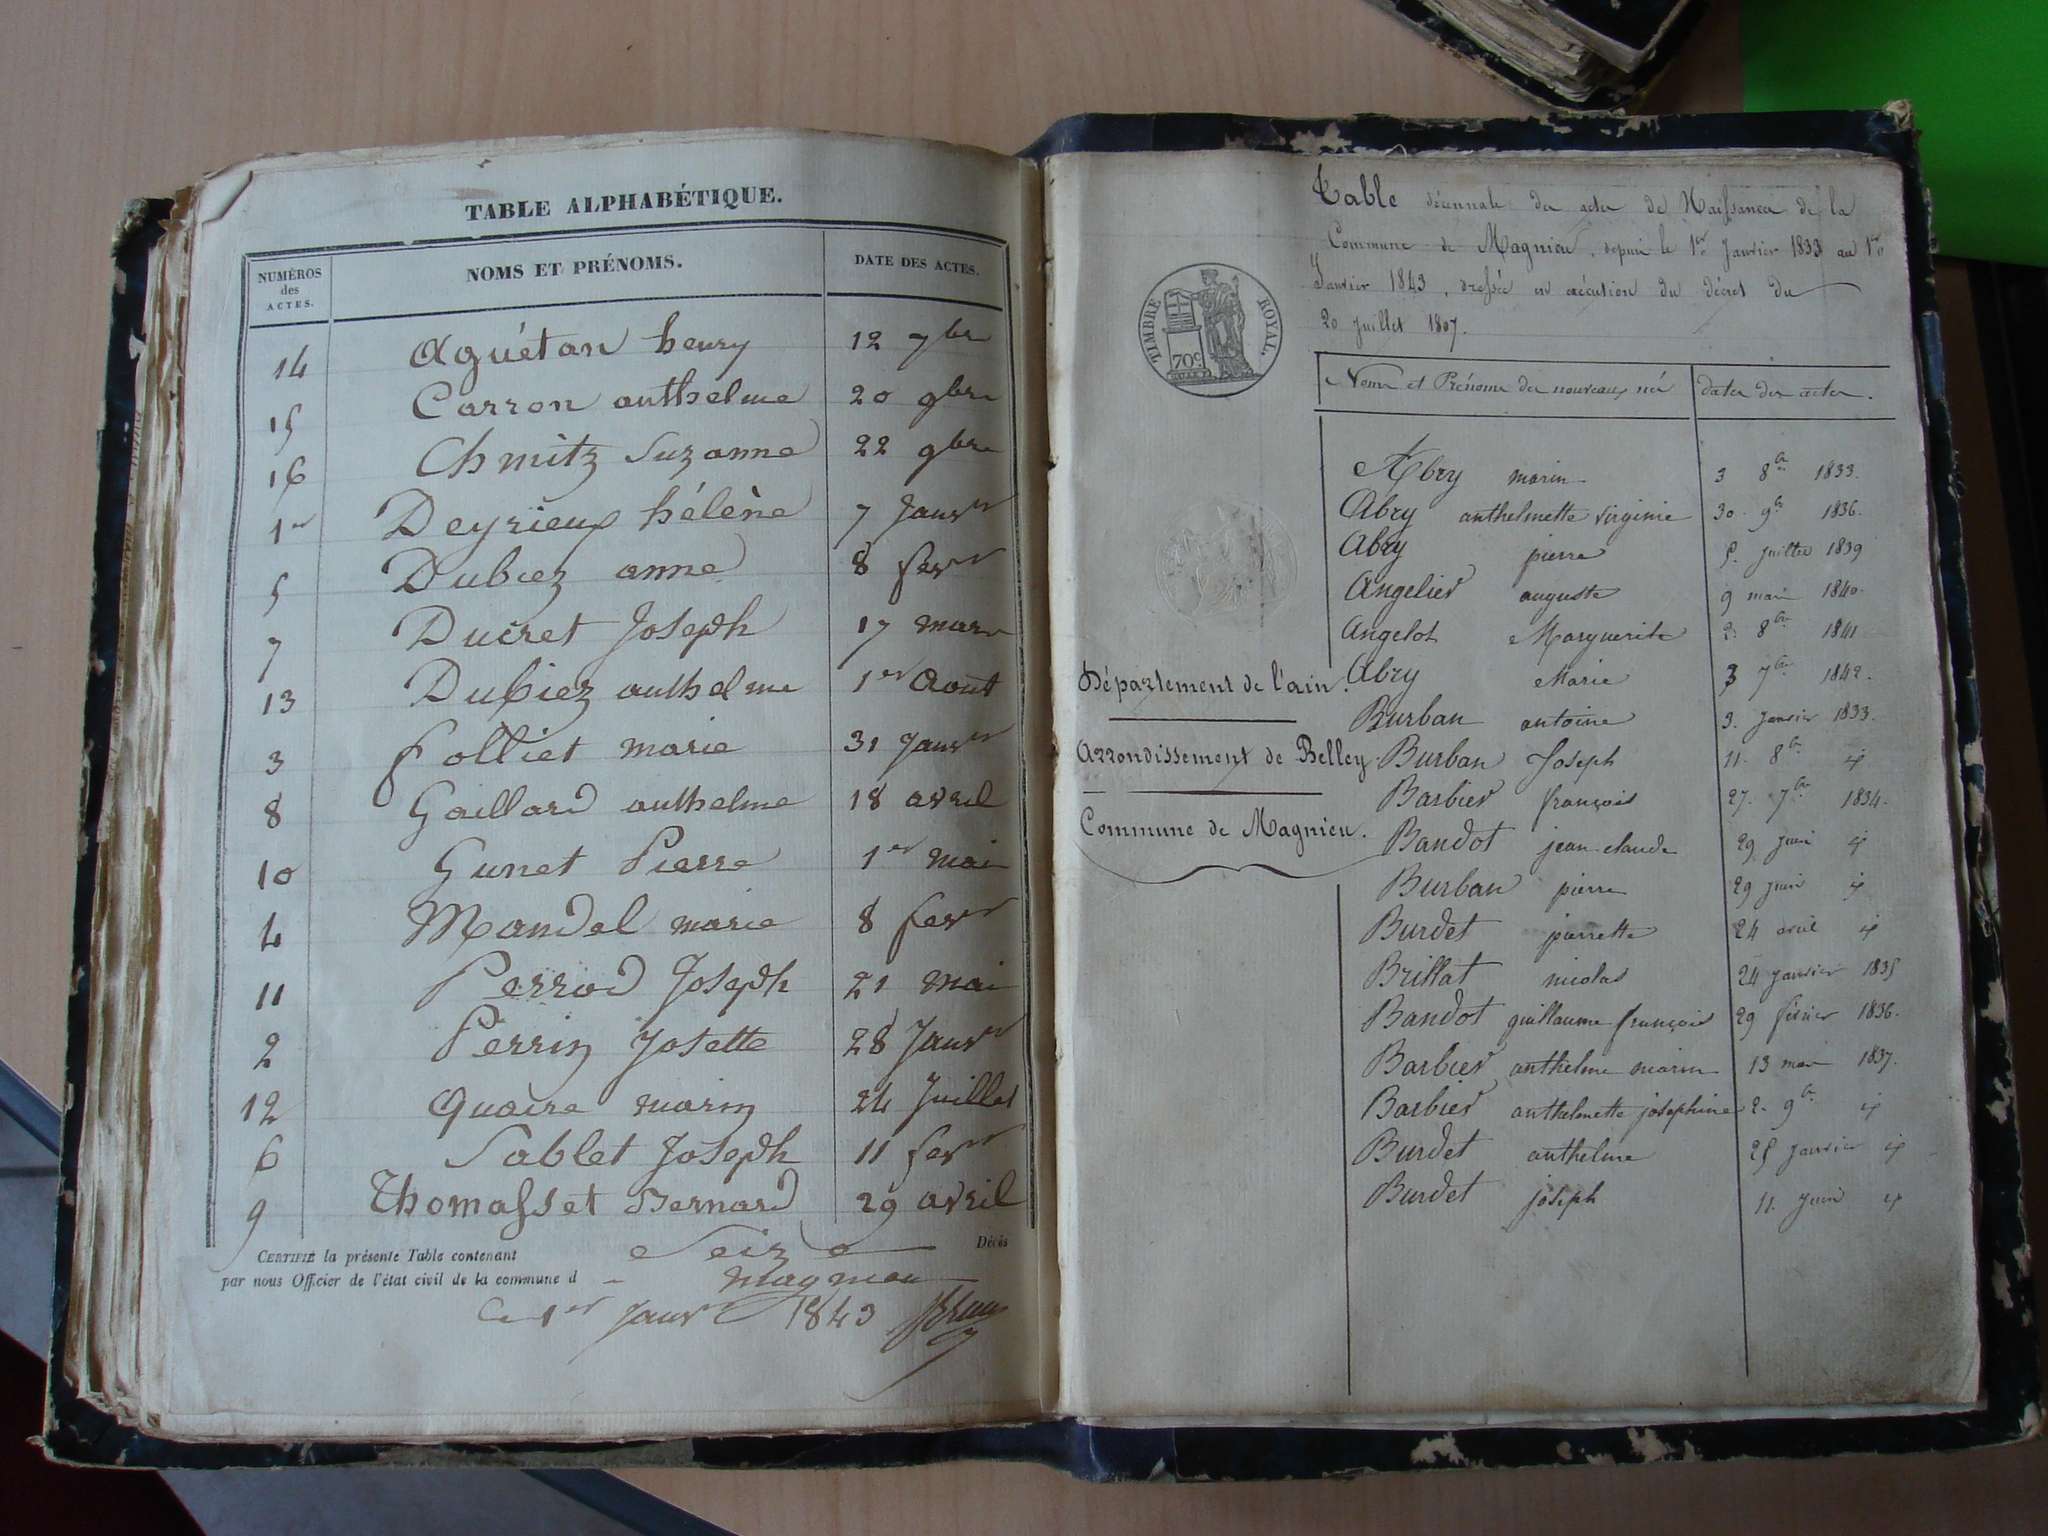 TABLE ALPHABÉTIQUE.
NUMÉROS des ACTES. NOMS ET PRÉNOMS. DATE DES ACTES.
14 Aguétan henry 12 7bre
15 Carron anthelme 20 9bre
16 Chmitz Suzanne 22 9bre
1er Deyrieux hélène 7 Janvr
5 Dubiez anne 8 fevr
7 Ducret Joseph 17 mars
13 Dubiez anthelme 1er Août
3 folliet marie 31 Janvr
8 Gaillard anthelme 18 avril
10 Gunet Pierre 1er mai
4 Mandel marie 8 fevr
11 Perrod Joseph 21 mai
2 Perrin Josette 28 Janvr
12 Quaire marin 24 Juillet
6 Sablet Joseph 11 fevr
9 Thomasset Bernard 29 avril
CERTIFIÉ la présente Table contenant Seize Décès
par nous Officier de l'état civil de la commune d magnieu
Ce 1er Janvr 1843
Table décennale des actes de Naissances de la
Commune de Magnieu, depuis le 1er Janvier 1833 au 1er
Janvier 1843, dressée en exécution du décret du
20 juillet 1807.
TIMBRE ROYAL.
70c
Noms et Prénoms des nouveaux né dates des actes.
Abry marin 3 8bre 1833.
Abry anthelmette virginie 30 9bre 1836.
Abry pierre 5. juillet 1839
Angelier auguste 9 mai 1840.
Angelot Marguerite 2. 8bre 1841
Département de l'ain.
Abry Marie 3 7bre 1842.
Burban antoine 3. Janvier 1833.
Arrondissement de Belley
Burban Joseph 11. 8bre id
Barbier françois 27. 7bre 1834.
Commune de Magnieu.
Bandot jean claude 29 juin id
Burban pierre 29 juin id
Burdet pierrette 24 avril id
Brillat nicolas 24 janvier 1835
Bandot guillaume françois 29 février 1836.
Barbier anthelme marin 13 mai 1837.
Barbier anthelmette josephine 2. 9bre id
Burdet anthelme 25 janvier id
Burdet joseph 11. juin id